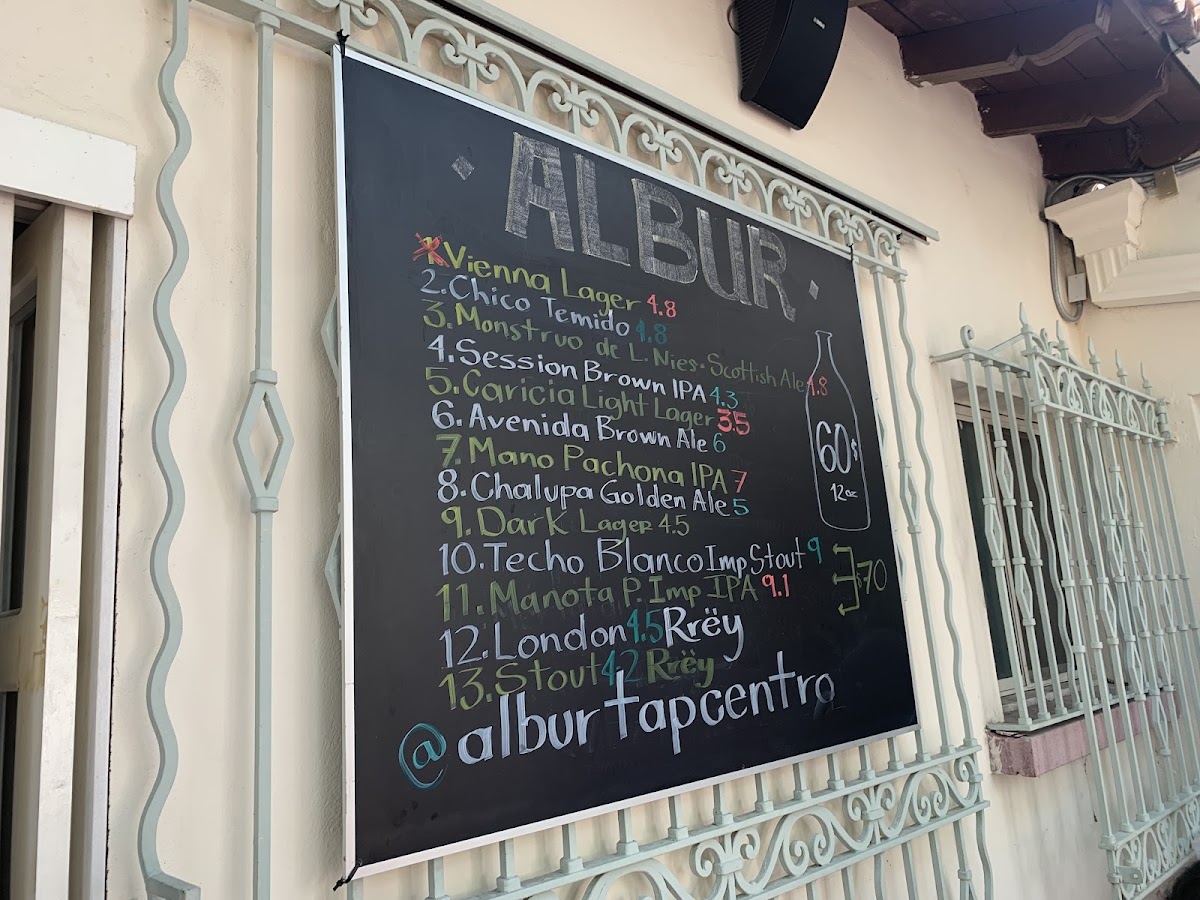 ALBUR
1. Vienna Lager 4.8
2. Chico Temido 4.8
3. Monstruo de L. Nies. Scottish Ale 4.8
4. Session Brown IPA 4.3
5. Caricia Light Lager 3.5
6. Avenida Brown Ale 6
7. Mano Pachona IPA 7
8. Chalupa Golden Ale 5
9. Dark Lager 4.5
10. Techo Blanco Imp Stout 9
11. Manota P. Imp IPA 9.1
12. London 4.5 Rrëy
13. Stout 4.2 Rrëy
@alburtapcentro
60$
12oz
70